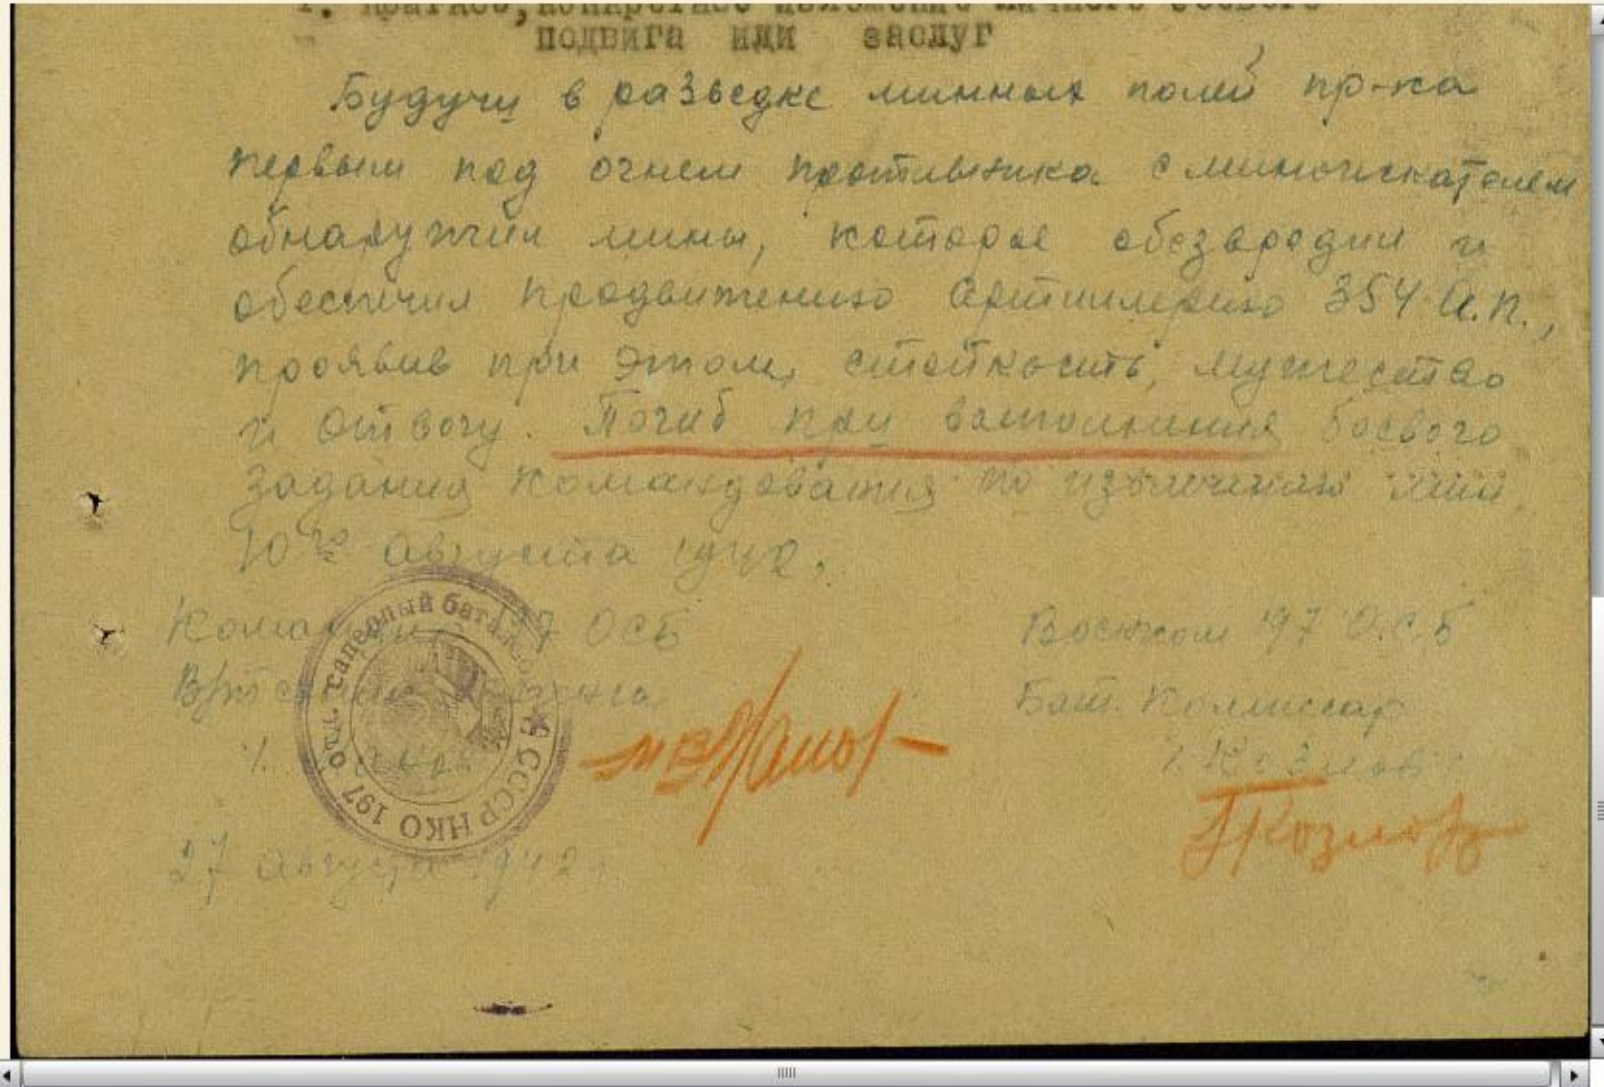 1. Краткое, конкретное изложение личного боевого
подвига или заслуг
Будучи в разведке минных полей пр-ка
первым под огнем противника с миноискателем
обнаружил мины, которые обезвредил и
обеспечил продвижению артиллерию 354 А.П.,
проявив при этом стойкость, мужество
и отвагу. Погиб при выполнении боевого
задания командования по извлечению мин
10го августа 1942.
197 ОСБ
Военком 197 О.С.Б
Бат. Комиссар
/Козлов/
Козлов
197 отд. саперный батальон ★ СССР НКО
27 августа 1942 г.